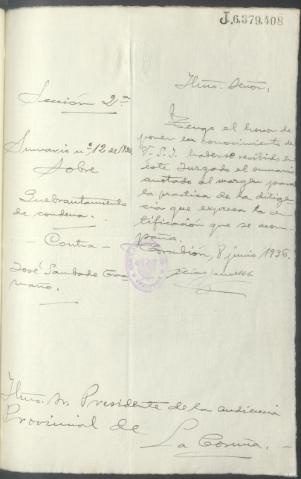 J.6.379.408
Sección 2ª
Sumario nº 12 de
Sobre
Quebrantamiento
de condena.
- Contra -
José
Ilmo. Señor,
Tengo el honor de
poner en conocimiento de
V.S.I. haberse recibido en
este Juzgado el sumario
anotado al margen para
la práctica de la diligen
cias que expresa la cer
tificación que se acom
paña.
8 junio 1936.
Ilmo. Sr. Presidente de la audiencia
Provincial de
La Coruña.-